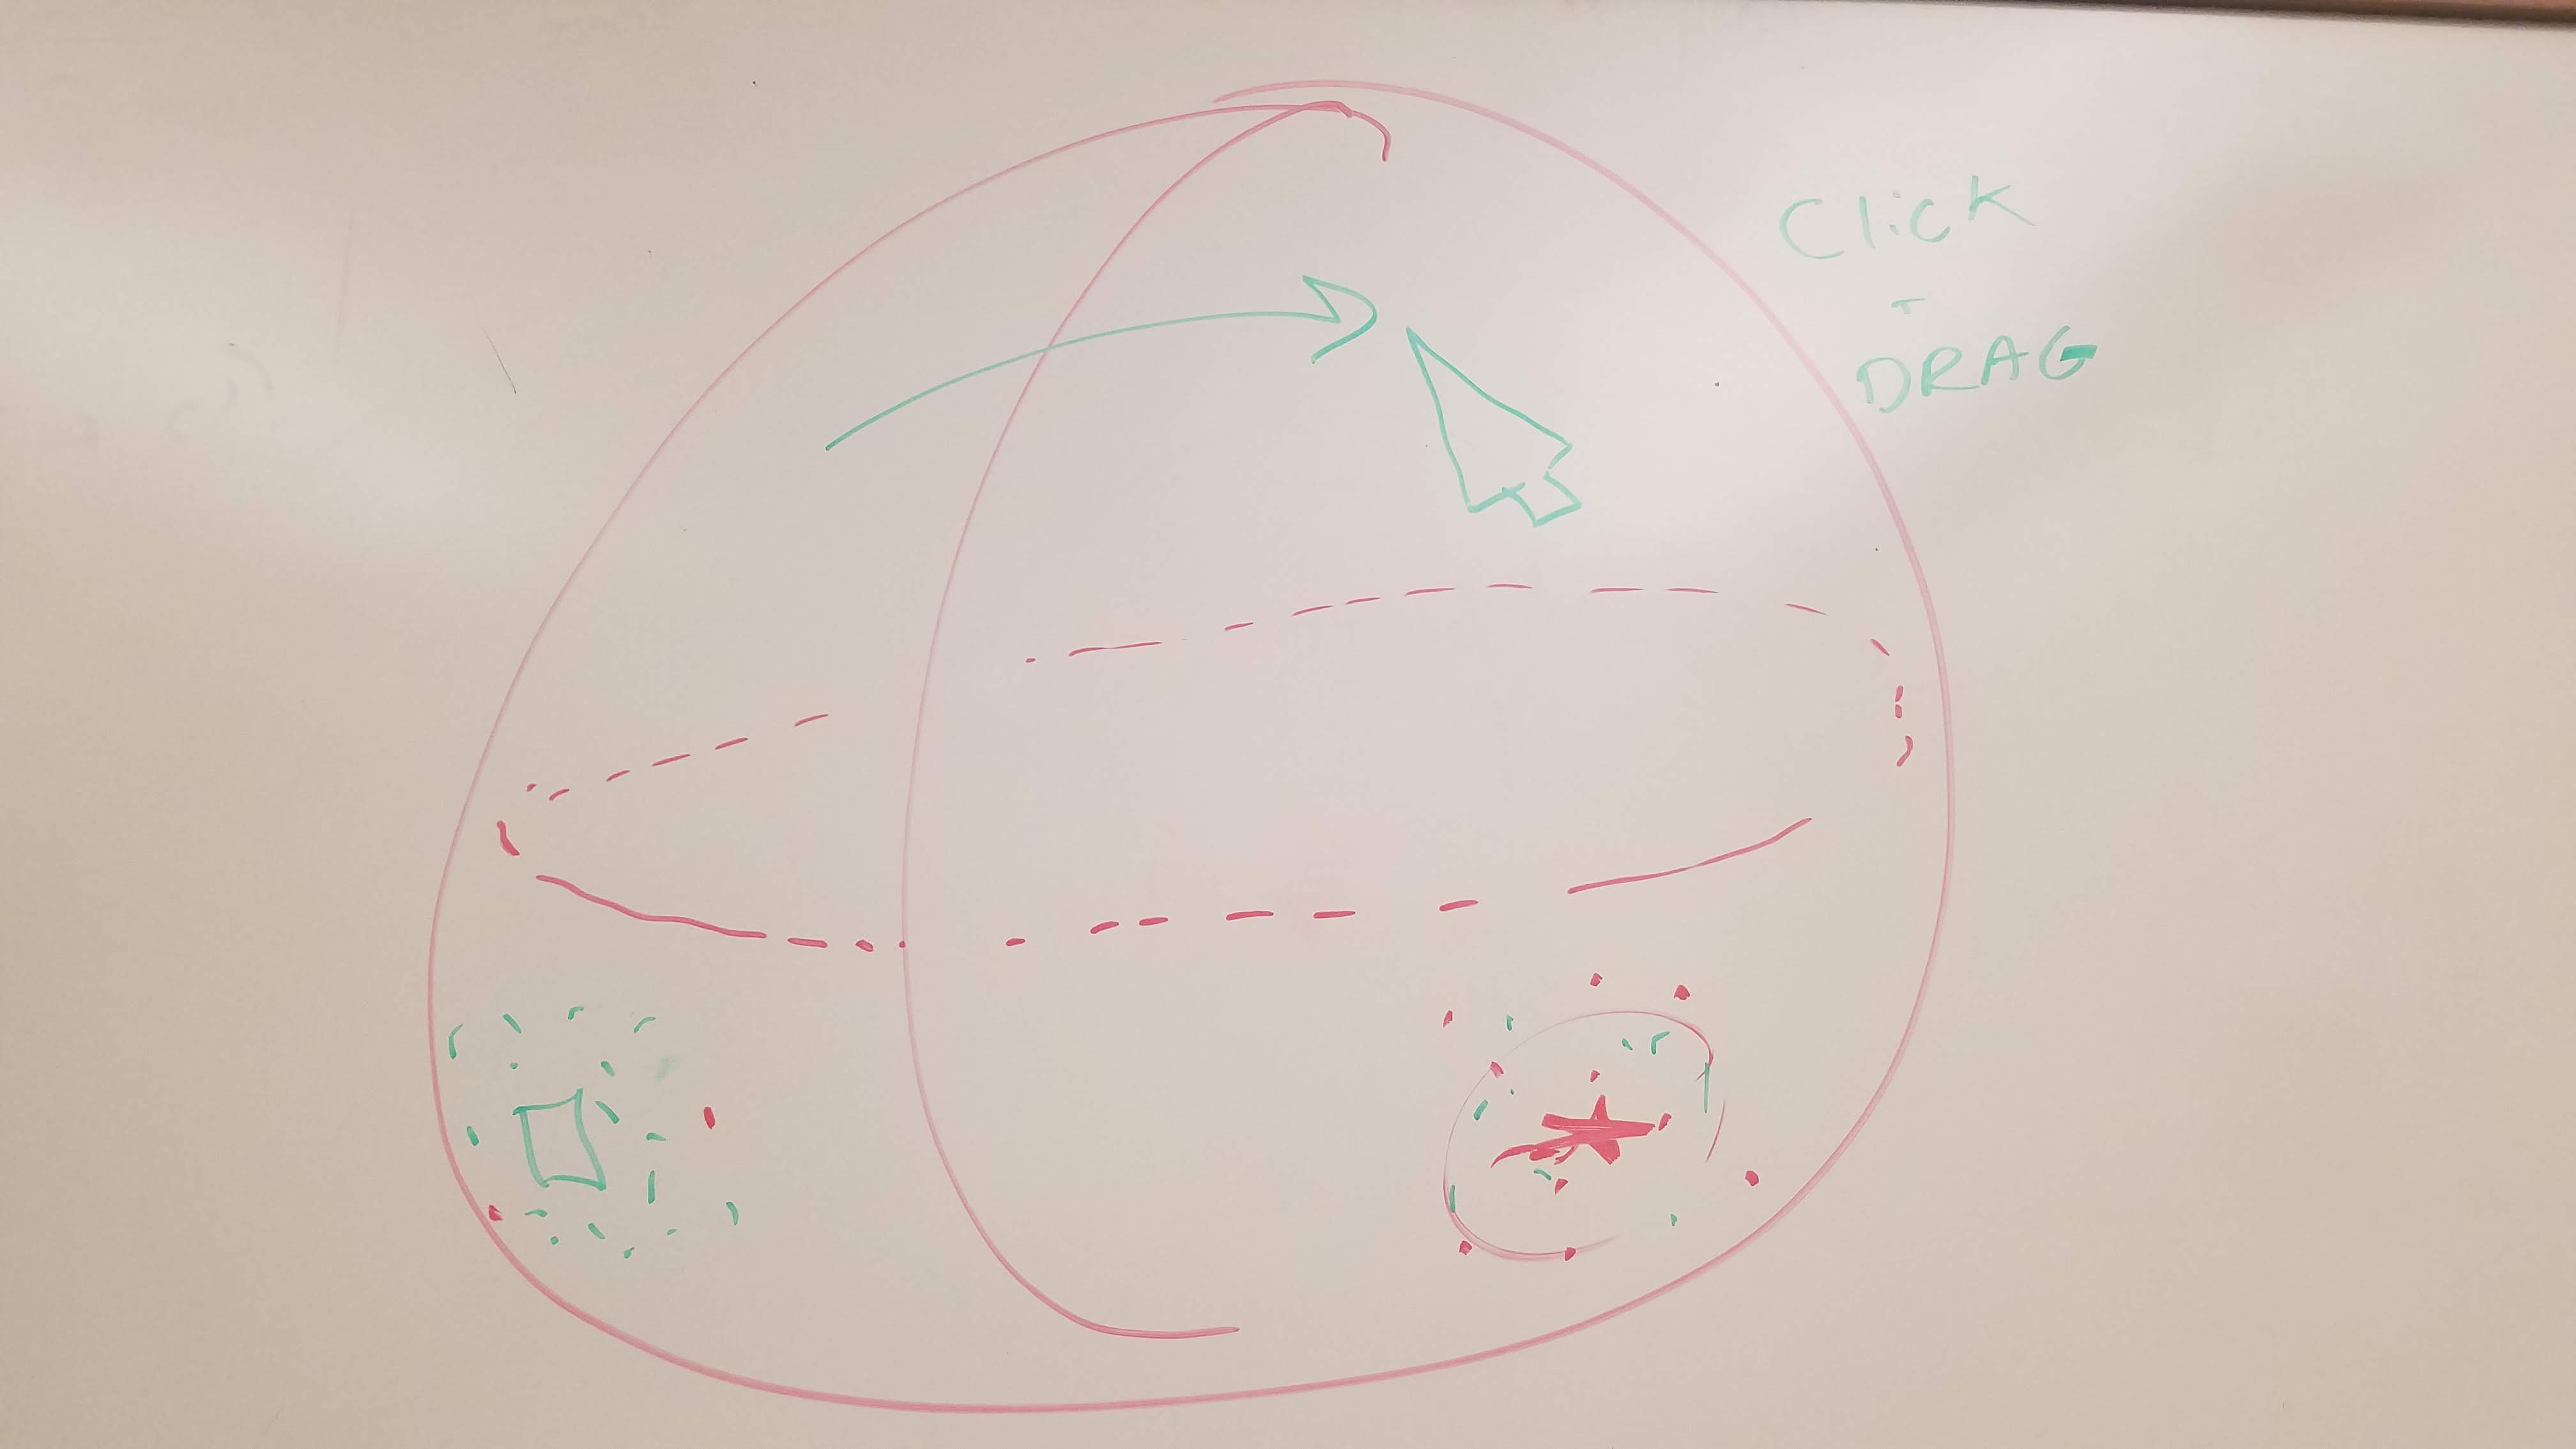 Click
+
DRAG